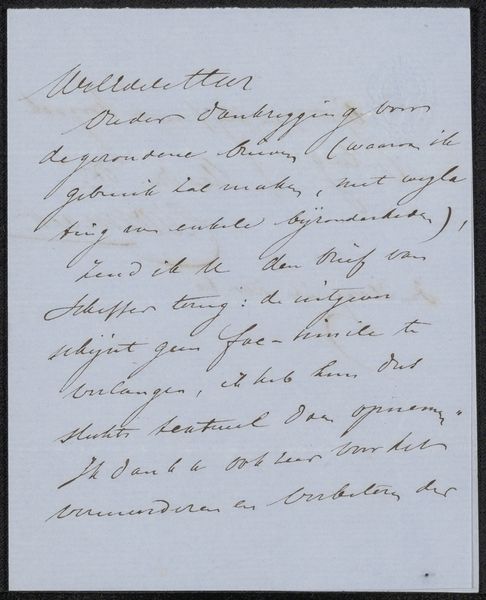 WelEdele Heer
Onder dankzegging voor
de gezondene brieven (waarvan ik
gebruik zal maken, met wegla
ting van enkele bijzonderheden),
zend ik U den brief van
Scheffer terug: de uitgever
schijnt geen fac-simile te
verlangen, ik heb hem dus
slechts textueel doen opnemen
Ik dank U ook zeer voor het
verminderen en verbeteren der